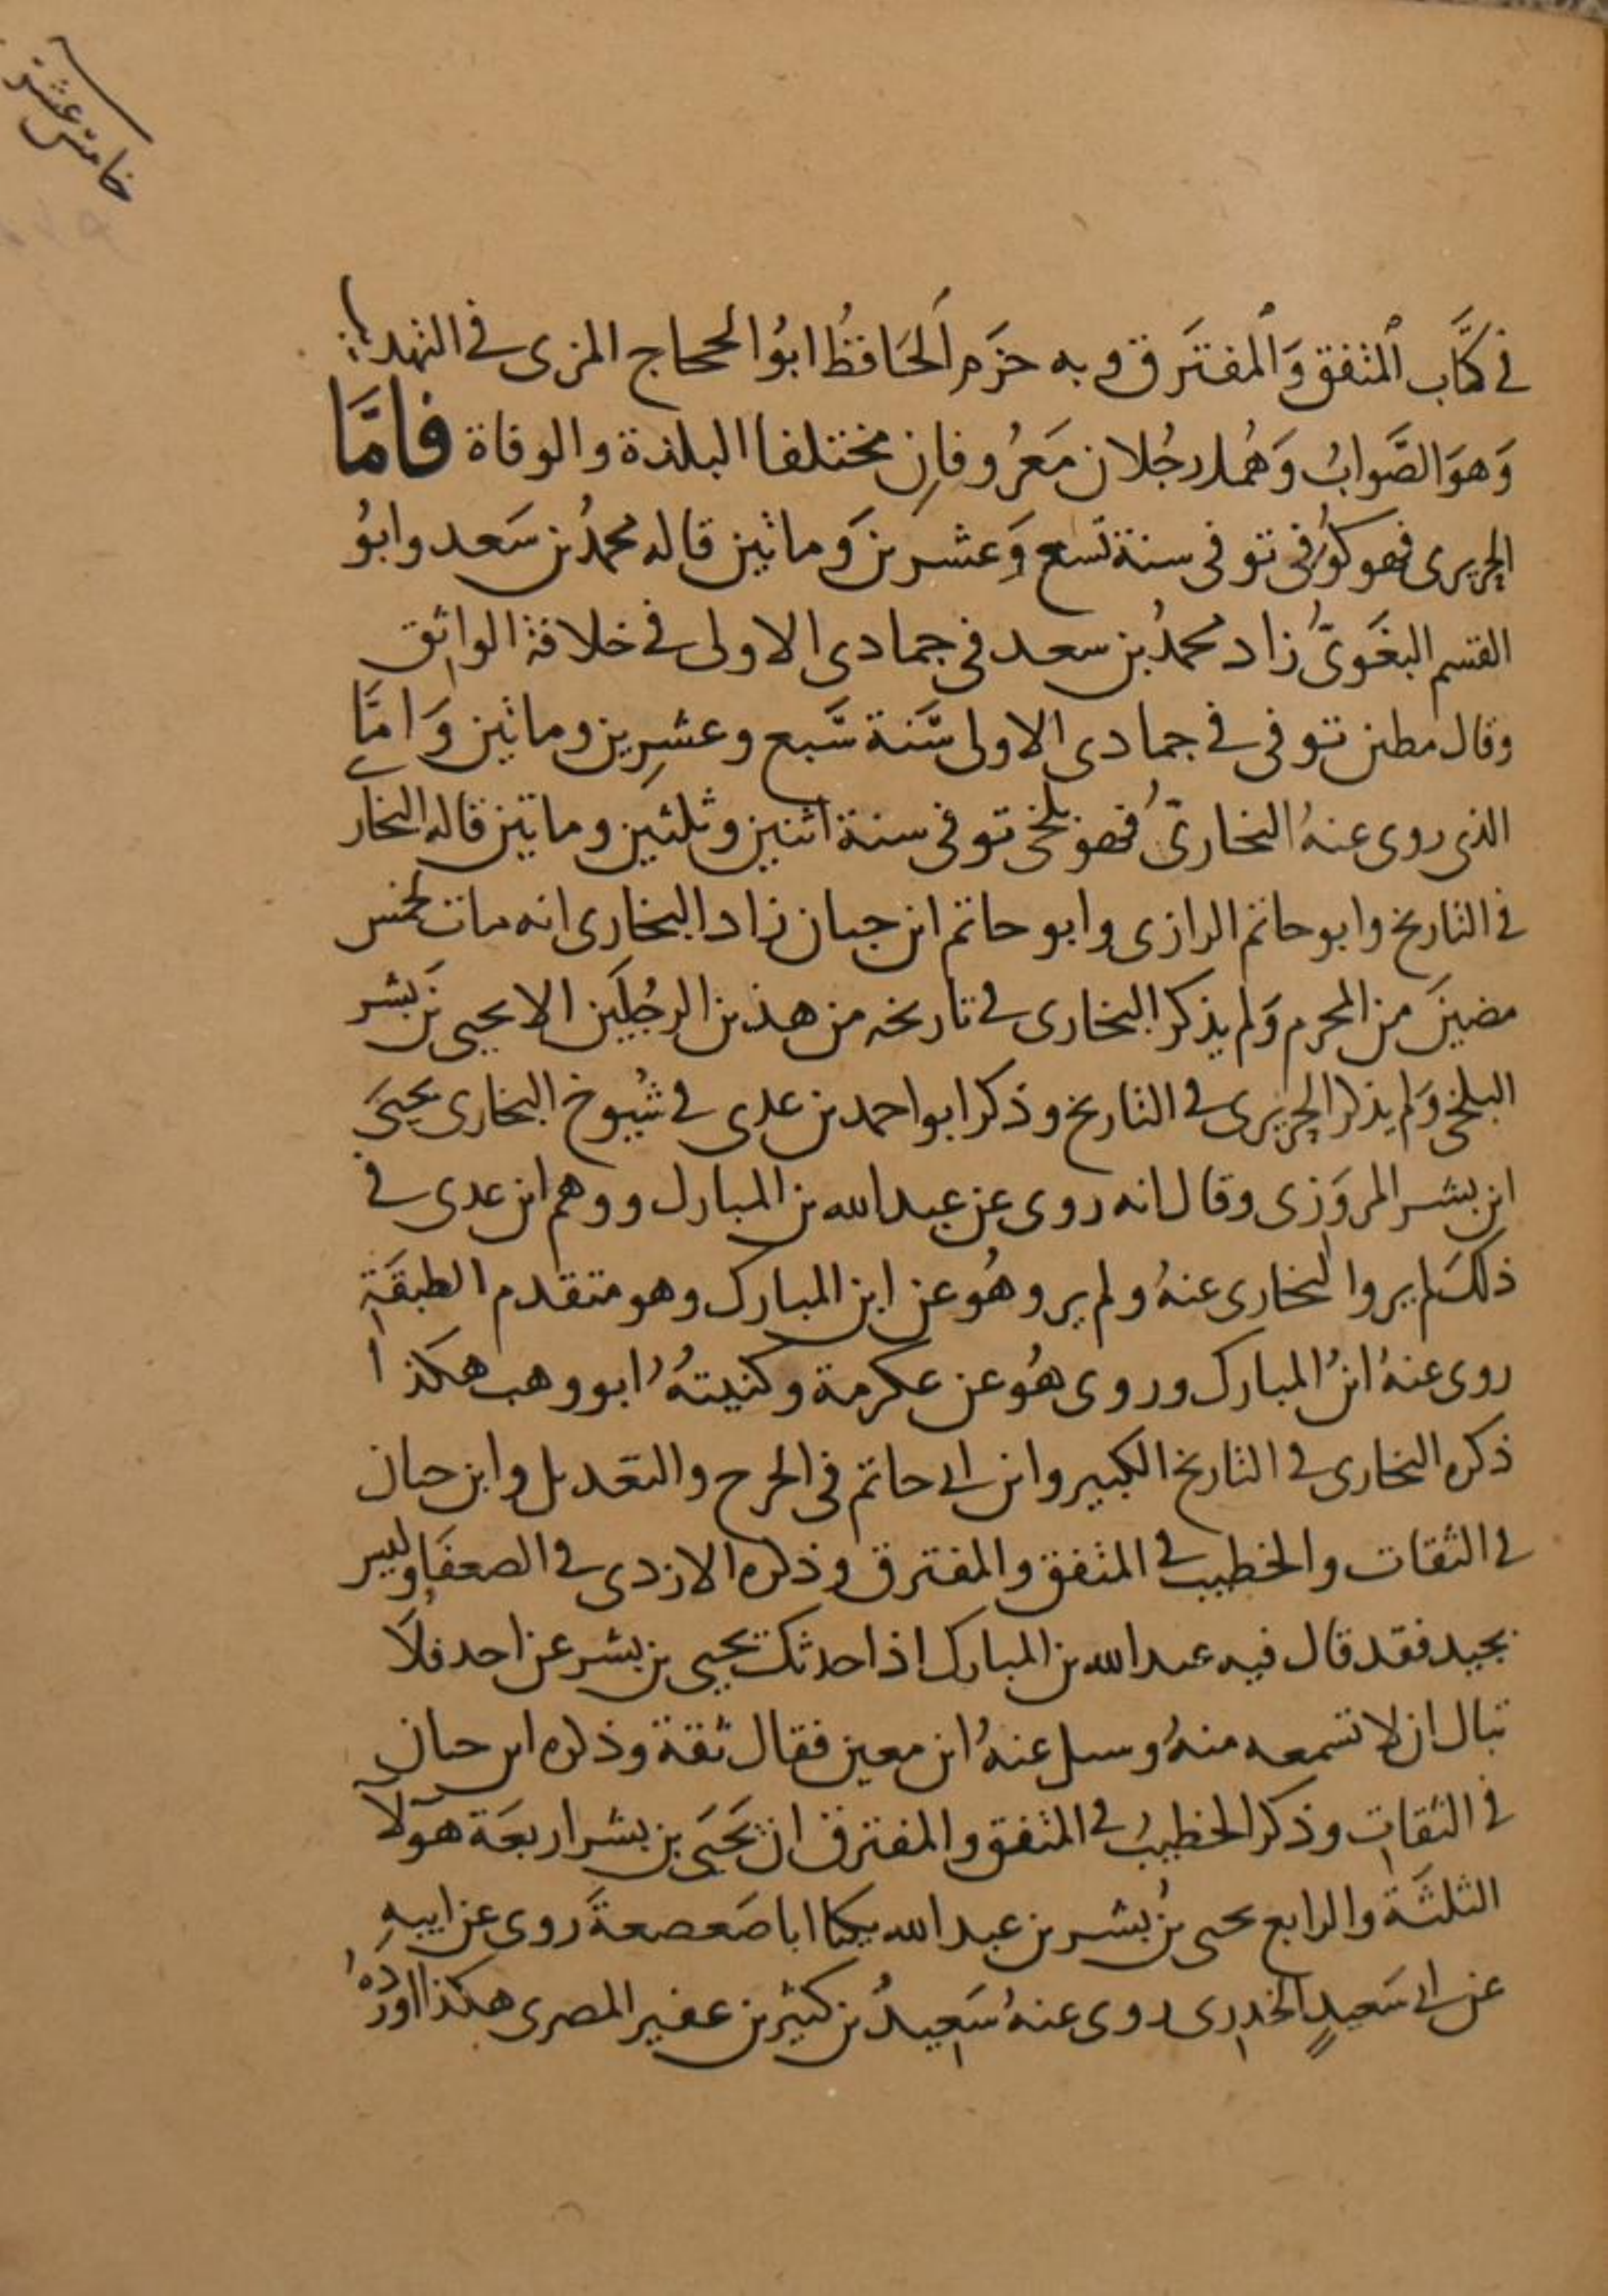 خامس عشر
في كتاب المتفق والمفترق وبه جزم الحافظ ابو الحجاج المزى في التهذيب
وهو الصواب وهما رجلان معروفان مختلفا البلدة والوفاة فاما
الحريرى فهو كوفى توفى سنة تسع وعشرين وماتين قاله محمد بن سعد وابو
القسم البغوى زاد محمد بن سعد في جمادى الاولى في خلافة الواثق
وقال مطين توفى في جمادى الاولى سنة سبع وعشرين وماتين واما
الذى روى عنه البخارى فهو بلخى توفى سنة اثنين وثلثين وماتين قاله البخارى
في التاريخ وابو حاتم الرازى وابو حاتم ابن حبان زاد البخارى انه مات لخمس
مضين من المحرم ولم يذكر البخارى في تاريخه من هذين الرجلين الا يحيى بن بشر
البلخى ولم يذكر الحريرى في التاريخ وذكر ابو احمد بن عدى في شيوخ البخارى يحيى
ابن بشر المروزى وقال انه روى عن عبد الله بن المبارك ووهم ابن عدى في
ذلك لم يرو البخارى عنه ولم يرو هو عن ابن المبارك وهو متقدم الطبقة
روى عنه ابن المبارك وروى هو عن عكرمة وكنيته ابو وهب هكذا
ذكره البخارى في التاريخ الكبير وابن ابى حاتم في الجرح والتعديل وابن حبان
في الثقات والخطيب في المتفق والمفترق وذكره الازدى في الضعفا وليس
بجيد فقد قال فيه عبد الله بن المبارك اذا حدثك يحيى بن بشر عن احد فلا
تبال ان لا تسمعه منه وسيل عنه ابن معين فقال ثقة وذكره ابن حبان
في الثقات وذكر الخطيب في المتفق والمفترق ان يحيى بن بشر اربعة هولا
الثلثة والرابع يحيى بن بشر بن عبد الله يكنا ابا صعصعة روى عن ابيه
عن ابى سعيد الخدرى روى عنه سعيد بن كثير بن عفير المصرى هكذا اورده